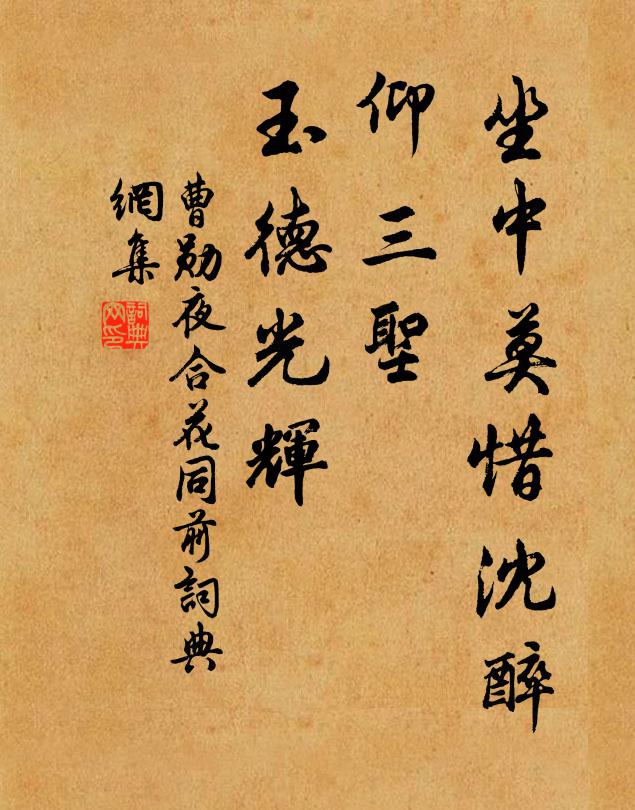 坐中莫惜沈醉
仰三聖
玉德光輝
曹勛夜合花同前詞典
網集
詞典
网印